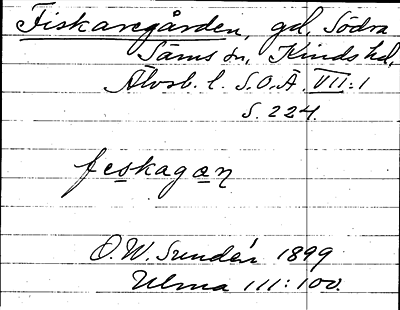 Fiskaregården, gd, Södra
Säms sn, Kinds hd,
Älvsb. l. S.O.Ä. VII:1
s. 224.
feskagaɳ
O.W. Sundén 1899
Ulma 111:100.